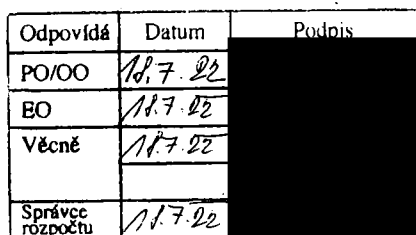 Odpovídá Datum Podpis
PO/OO 18.7.22
EO 18.7.22
Věcně 18.7.22
Správce
rozpočtu 18.7.22